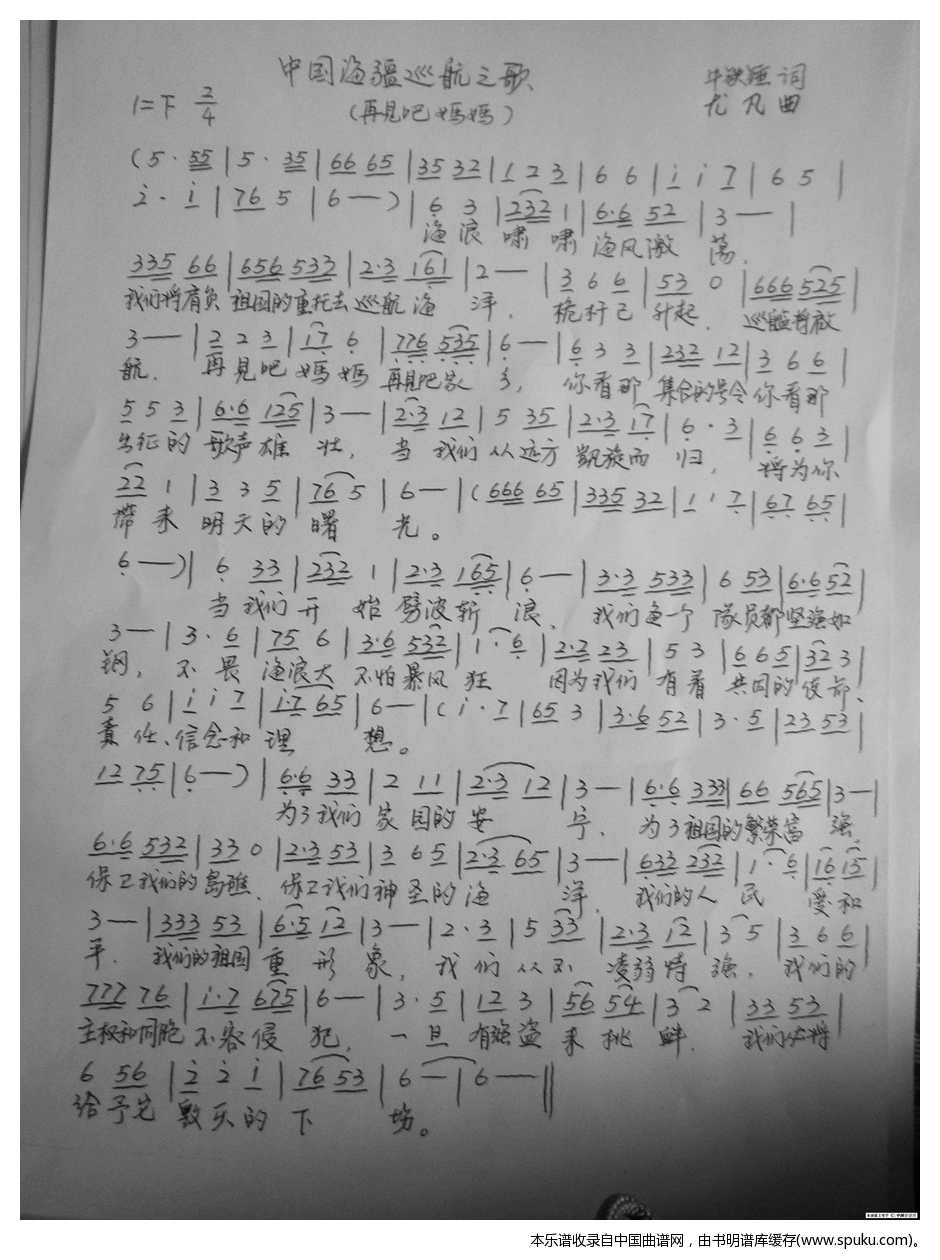 中国海疆巡航之歌
1=F 2/4 (再见吧妈妈) 词
尤凡曲
(5· 55 | 5· 35 | 66 65 | 35 32 | 1 2 3 | 6 6 | i i 7 | 6 5 |
2· i | 76 5 | 6 — ) | 6 3 | 232 1 | 6·6 52 | 3 — |
海浪啸啸海风激荡.
335 66 | 656 533 | 2·3 161 | 2 — | 3 6 6 | 53 0 | 666 525 |
我们将肩负祖国的重托去巡航海洋. 桅杆已升起. 巡艦将啟
3 — | 2 2 3 | 17 6 | 776 535 | 6 — | 6 3 3 | 232 12 | 3 6 6 |
航. 再见吧妈妈再见吧家乡, 你看那集合的号令你看那
5 5 3 | 6·6 125 | 3 — | 2·3 12 | 5 35 | 2·3 17 | 6· 3 | 6 6 3 |
出征的歌声雄壮, 当我们从远方凯旋而归, 将为你
22 1 | 3 3 5 | 76 5 | 6 — | (666 65 | 335 32 | 1 1 7 | 67 65 |
带来明天的曙光。
6 —) | 6 33 | 232 1 | 2·3 165 | 6 — | 3·3 533 | 6 53 | 6·6 52 |
当我们开始劈波斩浪, 我们每一个队员都坚强如
3 — | 3· 6 | 75 6 | 3·6 532 | 1· 6 | 2·2 23 | 5 3 | 6 6 5 | 32 3 |
钢, 不畏海浪大不怕暴风狂 因为我们有着共同的使命、
5 6 | i i 7 | i·7 65 | 6 — | ( i· 7 | 65 3 | 3·6 52 | 3· 5 | 23 53 |
责任、信念和理想。
12 75 | 6 — ) | 6·6 33 | 2 11 | 2·3 12 | 3 — | 6·6 333 | 66 565 | 3 — |
为了我们家园的安宁. 为了祖国的繁荣富强.
6·6 532 | 33 0 | 2·3 53 | 3 6 5 | 2·3 65 | 3 — | 633 232 | 1· 6 | 16 15 |
保卫我们的岛礁. 保卫我们神圣的海洋. 我们的人民爱和
3 — | 333 53 | 6·5 12 | 3 — | 2· 3 | 5 33 | 2·3 12 | 3 5 | 3 6 6 |
平. 我们的祖国重形象, 我们从不凌弱恃强. 我们的
777 76 | i·7 675 | 6 — | 3· 5 | 12 3 | 56 54 | 3 2 | 33 53 |
主权和同胞不容侵犯, 一旦有强盗来挑衅. 我们必将
6 56 | 2 2 i | 76 53 | 6 — | 6 — ‖
给予它毁灭的下场。
本乐谱收录自中国曲谱网，由书明谱库缓存(www.spuku.com)。